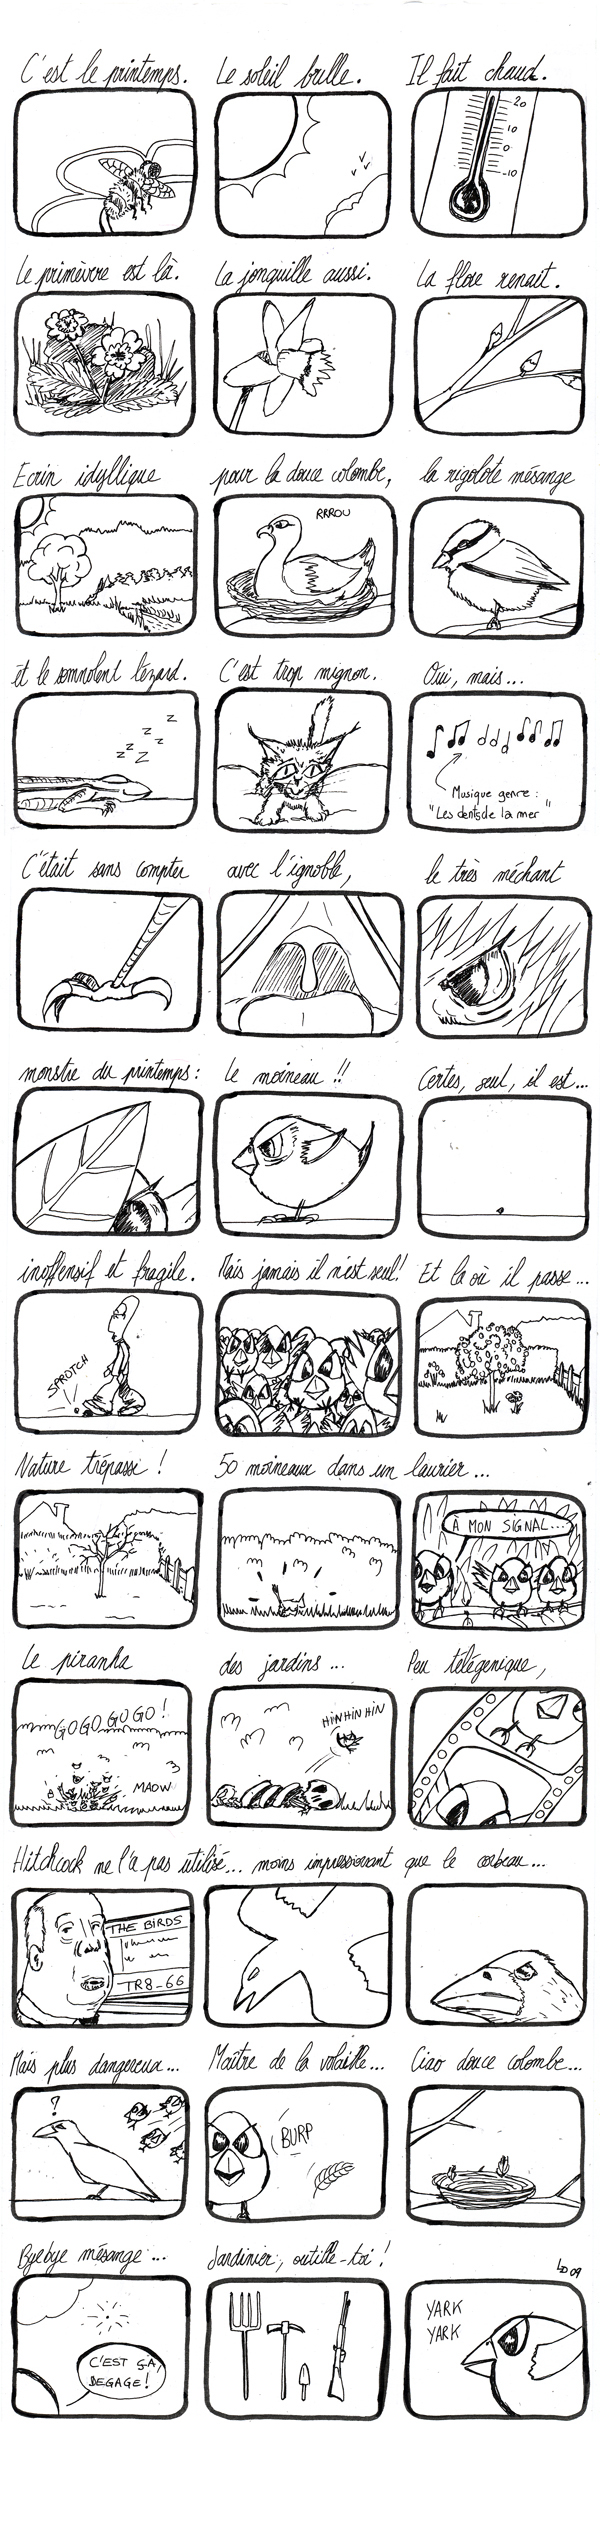 C'est le printemps. Le soleil brille. Il fait chaud.
20
10
0
-10
Le primevère est là. La jonquille aussi. La flore renait.
Ecrin idyllique pour la douce colombe, la rigolote mésange
RRROU
et le somnolent lézard. C'est trop mignon. Oui, mais...
Z Z Z Z Z Z
Musique genre :
"Les dents de la mer"
C'était sans compter avec l'ignoble, le très méchant
monstre du printemps: Le moineau !! Certes, seul, il est...
inoffensif et fragile. Mais jamais il n'est seul! Et là où il passe...
SPROTCH
Nature trépasse ! 50 moineaux dans un laurier...
À MON SIGNAL...
Le piranha des jardins... Peu télégenique,
GO GO GO GO !
MAOW
HiNHiNHiN
Hitchcock ne l'a pas utilisé... moins impressionant que le corbeau...
THE BiRDS
TR8_66
Mais plus dangereux... Maître de la volaille... Ciao douce colombe...
?
BURP
Byebye mésange... Jardinier, outille-toi !
LD 09
C'EST ÇA,
DEGAGE !
YARK
YARK